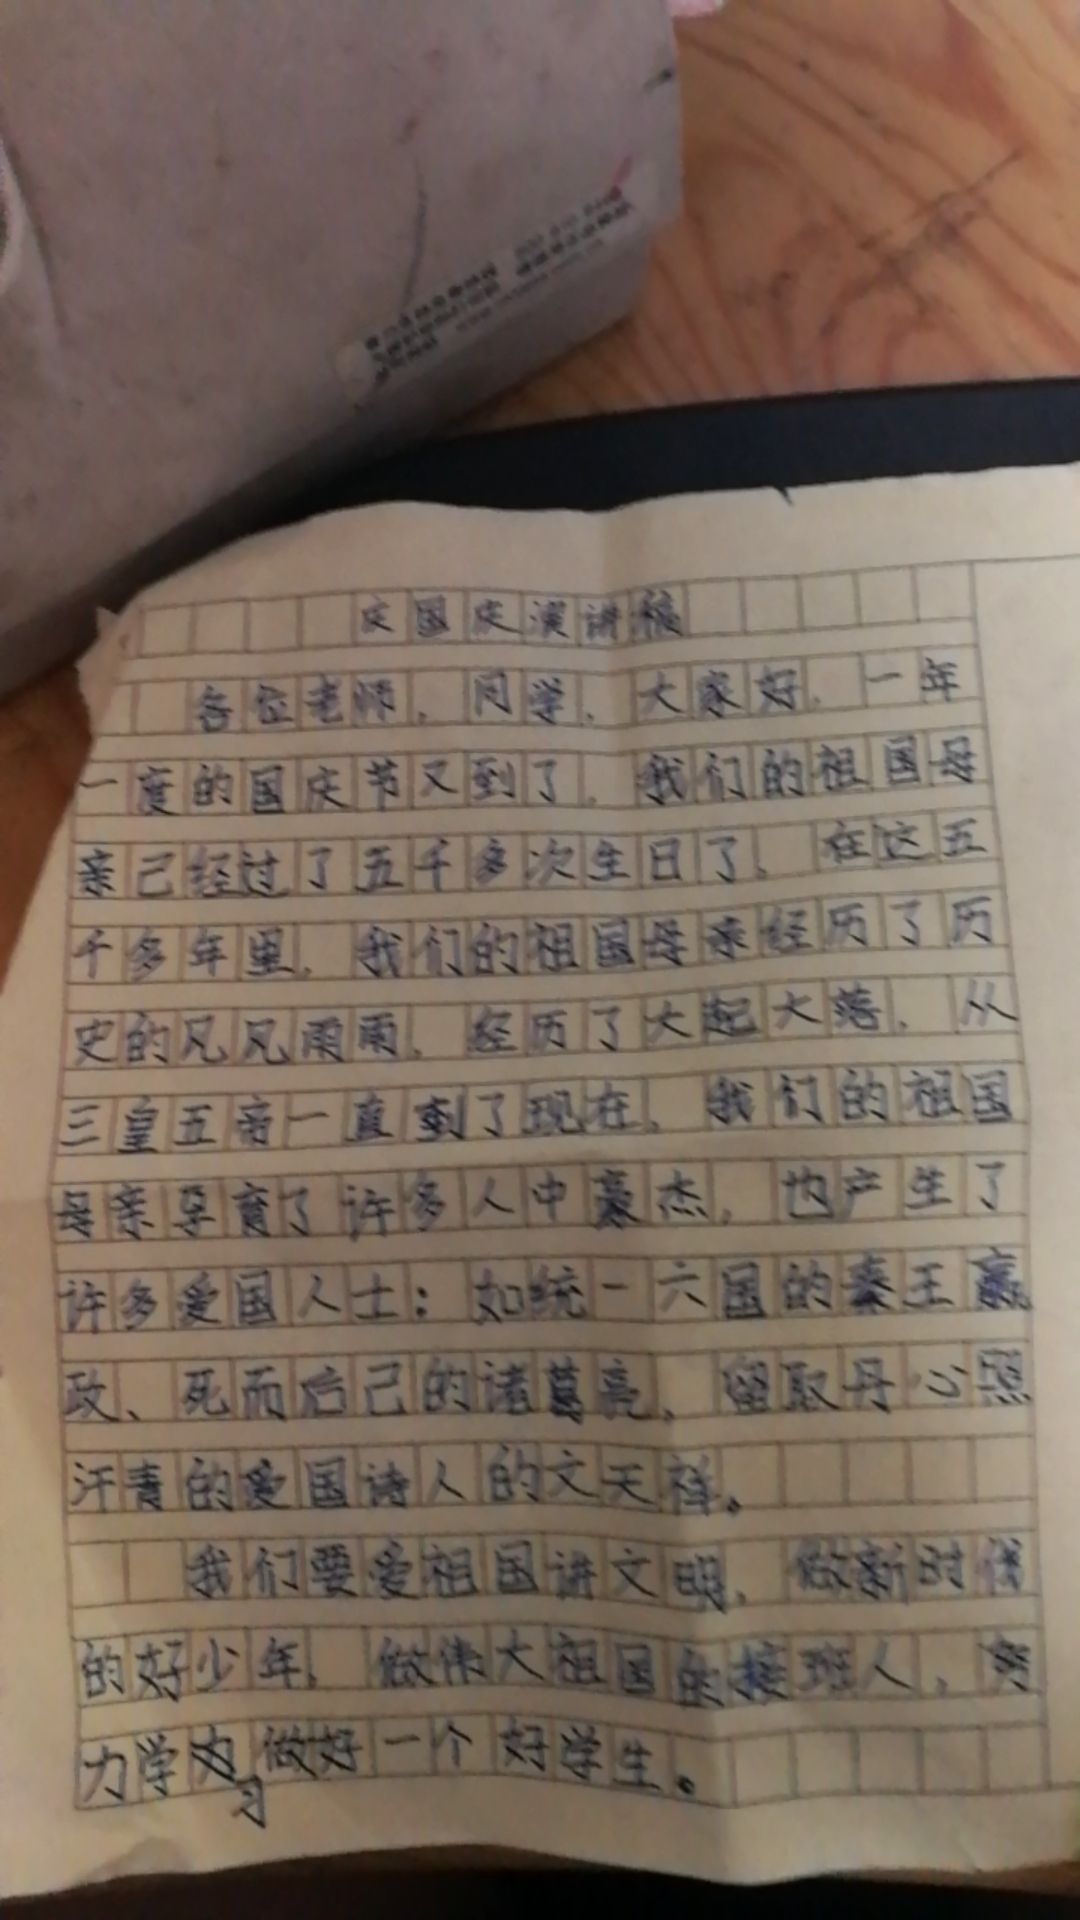 庆国庆演讲稿
各位老师，同学，大家好，一年
一度的国庆节又到了，我们的祖国母
亲己经过了五千多次生日了，在这五
千多年里，我们的祖国母亲经历了历
史的风风雨雨，经历了大起大落，从
三皇五帝一直到了现在，我们的祖国
母亲孕育了许多人中豪杰，也产生了
许多爱国人士：如统一六国的秦王嬴
政、死而后己的诸葛亮，留取丹心照
汗青的爱国诗人的文天祥。
我们要爱祖国讲文明，做新时代
的好少年，做伟大祖国的接班人，努
力学习做好一个好学生。